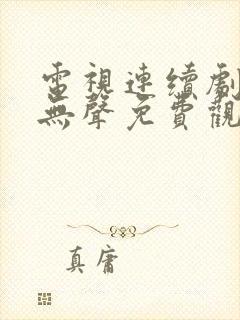 電視連續劇
無聲免費觀
真庸